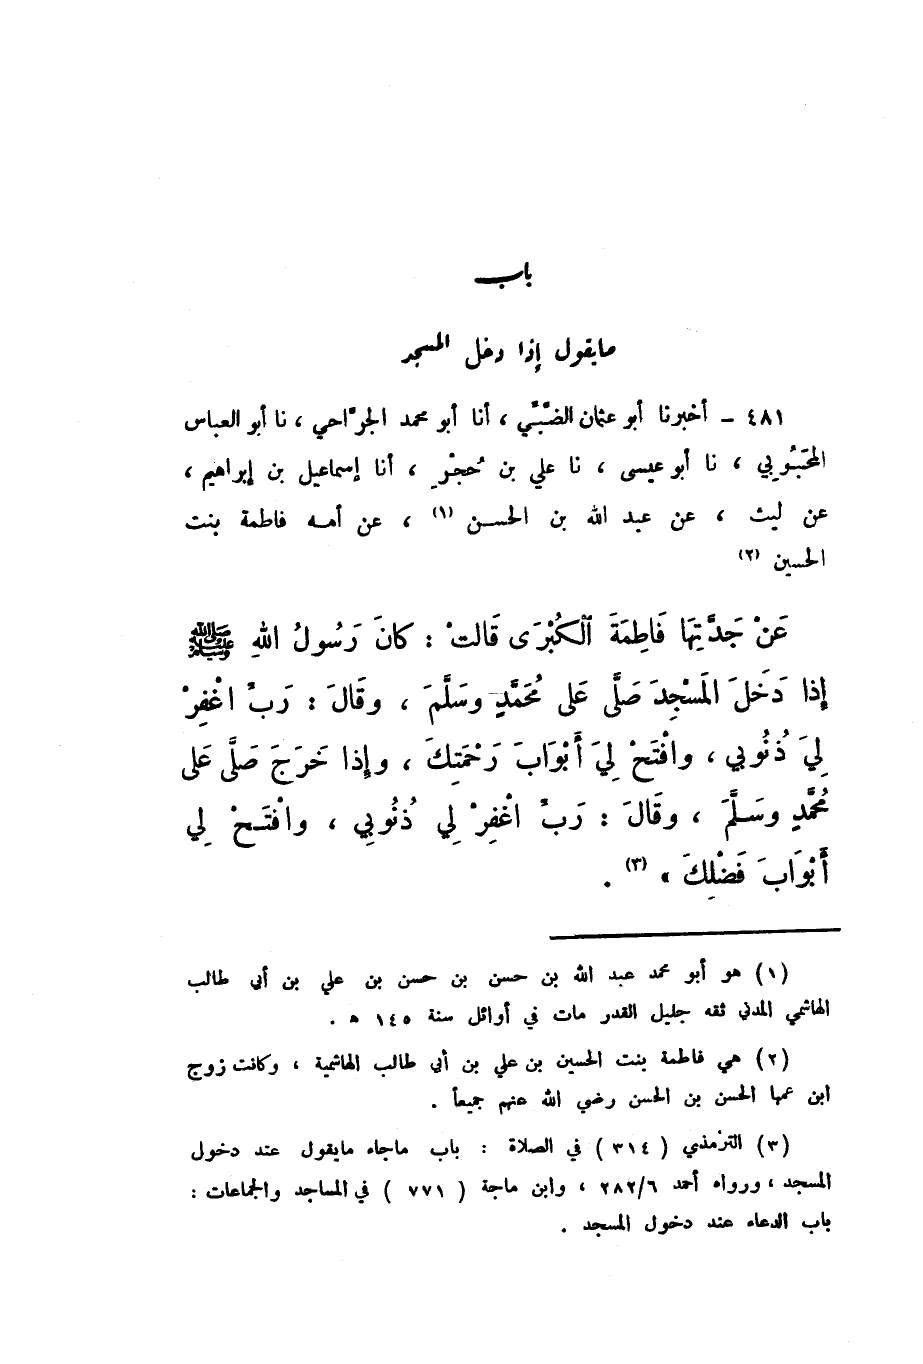 باب
مايقول إذا دخل المسجد
٤٨١ – أخبرنا أبو عثمان الضَّبِّي ، أنا أبو محمد الجرَّاحي ، نا أبو العباس
المحَبُوبي ، نا أبو عيسى ، نا علي بن حُجْرٍ ، أنا إسماعيل بن إبراهيم ،
عن ليث ، عن عبد الله بن الحسن (١) ، عن أمه فاطمة بنت
الحسين (٢)
عَنْ جَدَّتِهَا فَاطِمَةَ الكُبْرَى قَالتْ : كانَ رَسُولُ اللهِ ﷺ
إذا دَخَلَ المَسْجِدَ صَلَّى عَلى مُحَمَّدٍ وسَلَّمَ ، وقَالَ : رَبِّ اغْفِرْ
لِيَ ذُنُوبي ، وافْتَحْ لِيَ أَبْوَابَ رَحْمَتِكَ ، وإذا خَرَجَ صَلَّى عَلى
مُحَمَّدٍ وسَلَّمَ ، وقَالَ : رَبِّ اغْفِرْ لِي ذُنُوبِي ، وافْتَحْ لِي
أَبْوَابَ فَضْلِكَ » (٣) .
(١) هو أبو محمد عبد الله بن حسن بن حسن بن علي بن أبي طالب
الهاشمي المدني ثقه جليل القدر مات في أوائل سنة ١٤٥ ه .
(٢) هي فاطمة بنت الحسين بن علي بن أبي طالب الهاشمية ، وكانت زوج
ابن عمها الحسن بن الحسن رضي الله عنهم جميعاً .
(٣) الترمذي ( ٣١٤ ) في الصلاة : باب ماجاء مايقول عند دخول
المسجد ، ورواه أحمد ٢٨٢/٦ ، وابن ماجة ( ٧٧١ ) في المساجد والجماعات :
باب الدعاء عند دخول المسجد .